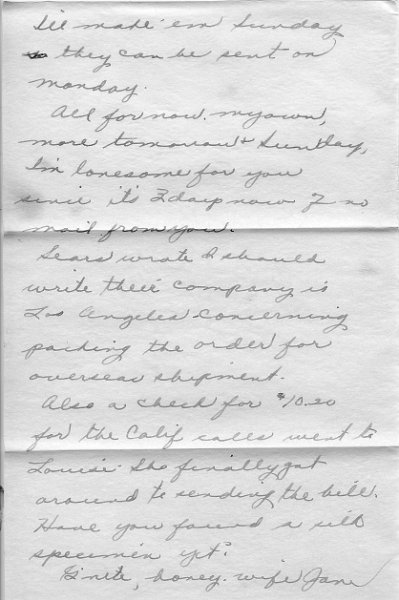 I'll make 'em Sunday
so they can be sent on
monday.
All for now. my own,
more tomorrow & Sunday,
I'm lonesome for you
since it's 3 days now & no
mail from you.
Sears wrote I should
write their company is
Los Angeles concerning
packing the order for
overseas shipment.
Also a check for $10.20
for the Calif calls went to
Louise. She finally got
around to sending the bill.
Have you found a
specimen yet?
G'nite, honey. wife Jane